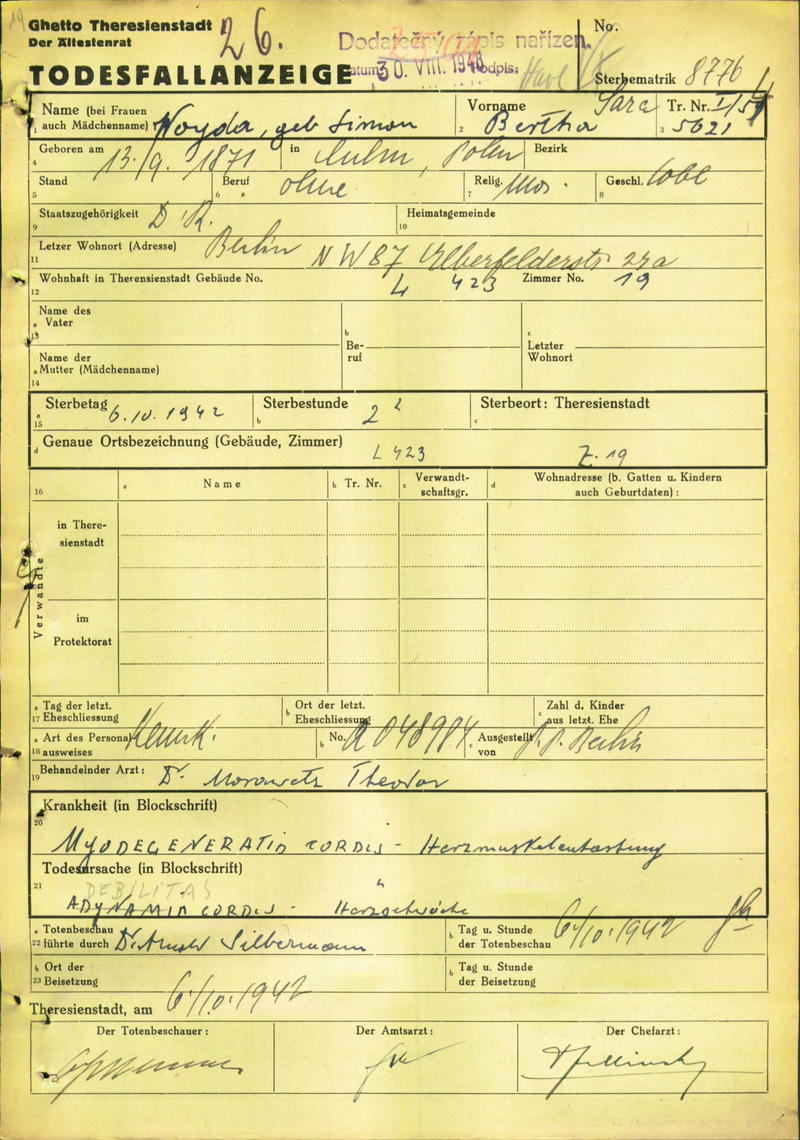 Ghetto Theresienstadt
Der Ältestenrat
26.
Dodatečný zápis nařízen.
No.
TODESFALLANZEIGE
Datum: 30. VIII. 1948 Podpis:
Sterbematrik 8776
Name (bei Frauen auch Mädchenname) Noyda, geb Simon
1
Vorname Sara Bertha
2
Tr. Nr. I/59 5021
3
Geboren am 13./9. 1871 in Culm, Polen Bezirk
4
Stand Beruf ohne Relig. Mos. Geschl.
5 6 7 8
Staatszugehörigkeit D. R. Heimatsgemeinde
9 10
Letzer Wohnort (Adresse) Berlin NW 87 Elberfelderstr. 27a
11
Wohnhaft in Therensienstadt Gebäude No. L 423 Zimmer No. 19
12
Name des
a Vater
13
b Beruf
c Letzter Wohnort
Name der
a Mutter (Mädchenname)
14
Sterbetag 6.10.1942 Sterbestunde 2 Sterbeort: Theresienstadt
a 15 b c
d Genaue Ortsbezeichnung (Gebäude, Zimmer) L 423 Z. 19
16 a Name b Tr. Nr. c Verwandtschaftsgr. d Wohnadresse (b. Gatten u. Kindern auch Geburtdaten):
Verwandte
in Theresienstadt
im Protektorat
a Tag der letzt.
17 Eheschliessung
b Ort der letzt. Eheschliessung
c Zahl d. Kinder aus letzt. Ehe
a Art des Personalausweises Kennk. b No. A 048984 c Ausgestellt von P.P. Berlin
18
Behandelnder Arzt: Dr. Morawetz Theodor
19
Krankheit (in Blockschrift)
20
MYODEGENERATIO CORDIS - Herzmuskelentartung
Todesursache (in Blockschrift)
21 DEBILITAS
ADYNAMIA CORDIS - Herzschwäche
a Totenbeschau
22 führte durch Dr. Arnold Silbermann
b Tag u. Stunde der Totenbeschau 6/10.1942
b Ort der
23 Beisetzung
b Tag u. Stunde der Beisetzung
Theresienstadt, am 6./10.1942
Der Totenbeschauer: Der Amtsarzt: Der Chefarzt: